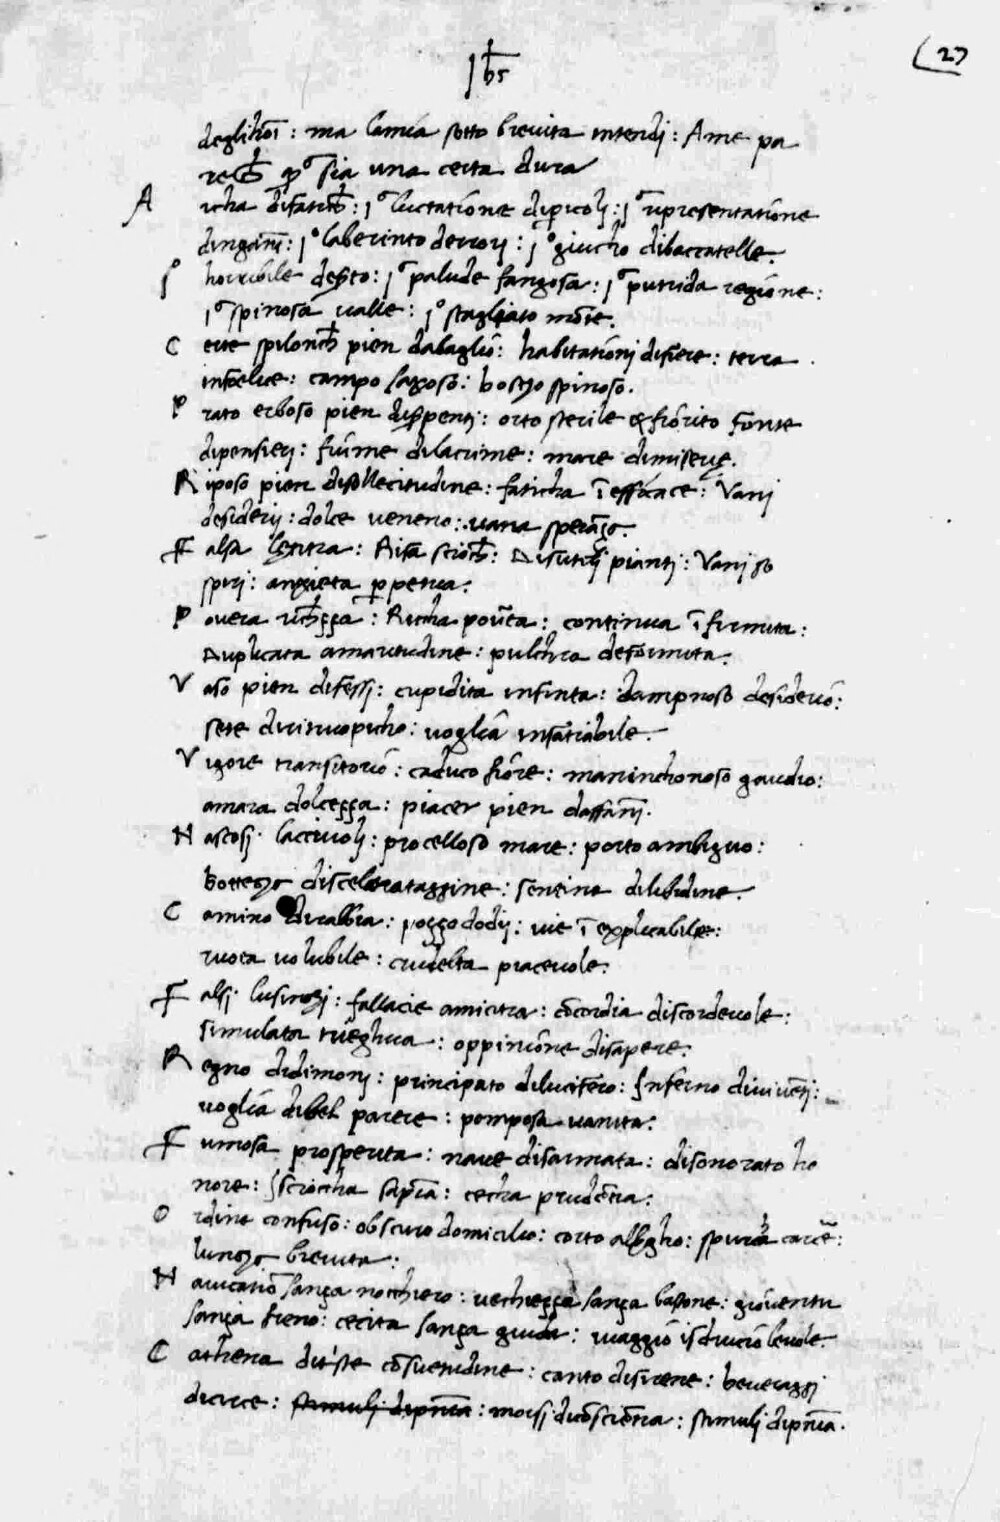 27
Jhs
deglihoī : ma lamia sotto breuita intendi : Ame pa
re una certa dura
A richa : luctatione di picoli : representatione
dingani : laberinto derrori : giucho dibaccatelle.
horribile desto : palude fangosa : putrida regione :
spinosa ualle : stagliato mōte.
C erte spilonch pien dabagliō : habitationi difiere : terra
infelice : campo sasoso : boscho spinoso.
P rato erboso pien disspenti : orto sterile & fiorito fonte
dipensieri : fiume dilacrime : mare dimiserie.
R iposo pien disollecitudine : faticha ī efficace : Vani
desiderij : dolce ueneno : uana sperāza.
F alsa letitia : Risa scioch : Disutili pianti : Vani so
spiri : anxieta ꝑpetua.
P ouera richeza : Richa pouta : continua ī firmita :
Duplicata amaritudine : pulchra deformita.
V aso pien difessi : cupidita infinita : dampnoso desiderio :
sete diritruopicho : uoglia insatiabile.
V igore transitorio : caduco fiore : maninchonoso gaudio :
amara dolcezza : piacer pien daffani.
N ascosi lacciuoli : procelloso mare : porto ambiguo :
bottega discelerataggine : sentina dilibidine.
C amino dirabbia : pozzo dodij : uie ī explicabile :
ruota uolubile : crudelta piaceuole.
F alsi lusinghi : fallacie amicitia : cōcordia discordeuole :
simulata trieghua : oppinione disapere.
R egno didimonj : principato dilucifero : Inferno diuiuēti :
uoglia dibel parere : pomposa uanita.
F umosa prosperita : naue disarmata : disonorato ho
nore : sciocha sapīa : cecha prudētia :
O rdine confuso : obscuro domicilio : corto albgho : spurcha carcē :
lungha breuita :
N auicatiō sanza nocchiero : uechieza sanza bastone : giouentu
sanza freno : cecita sanza guida : uiaggio isdrucioleuole.
C athena ditriste cōsuetudine : canto disirene : beueraggi
dicirce : stimuli dipnīa : morsi dicōsciētia : stimuli dipnīa.